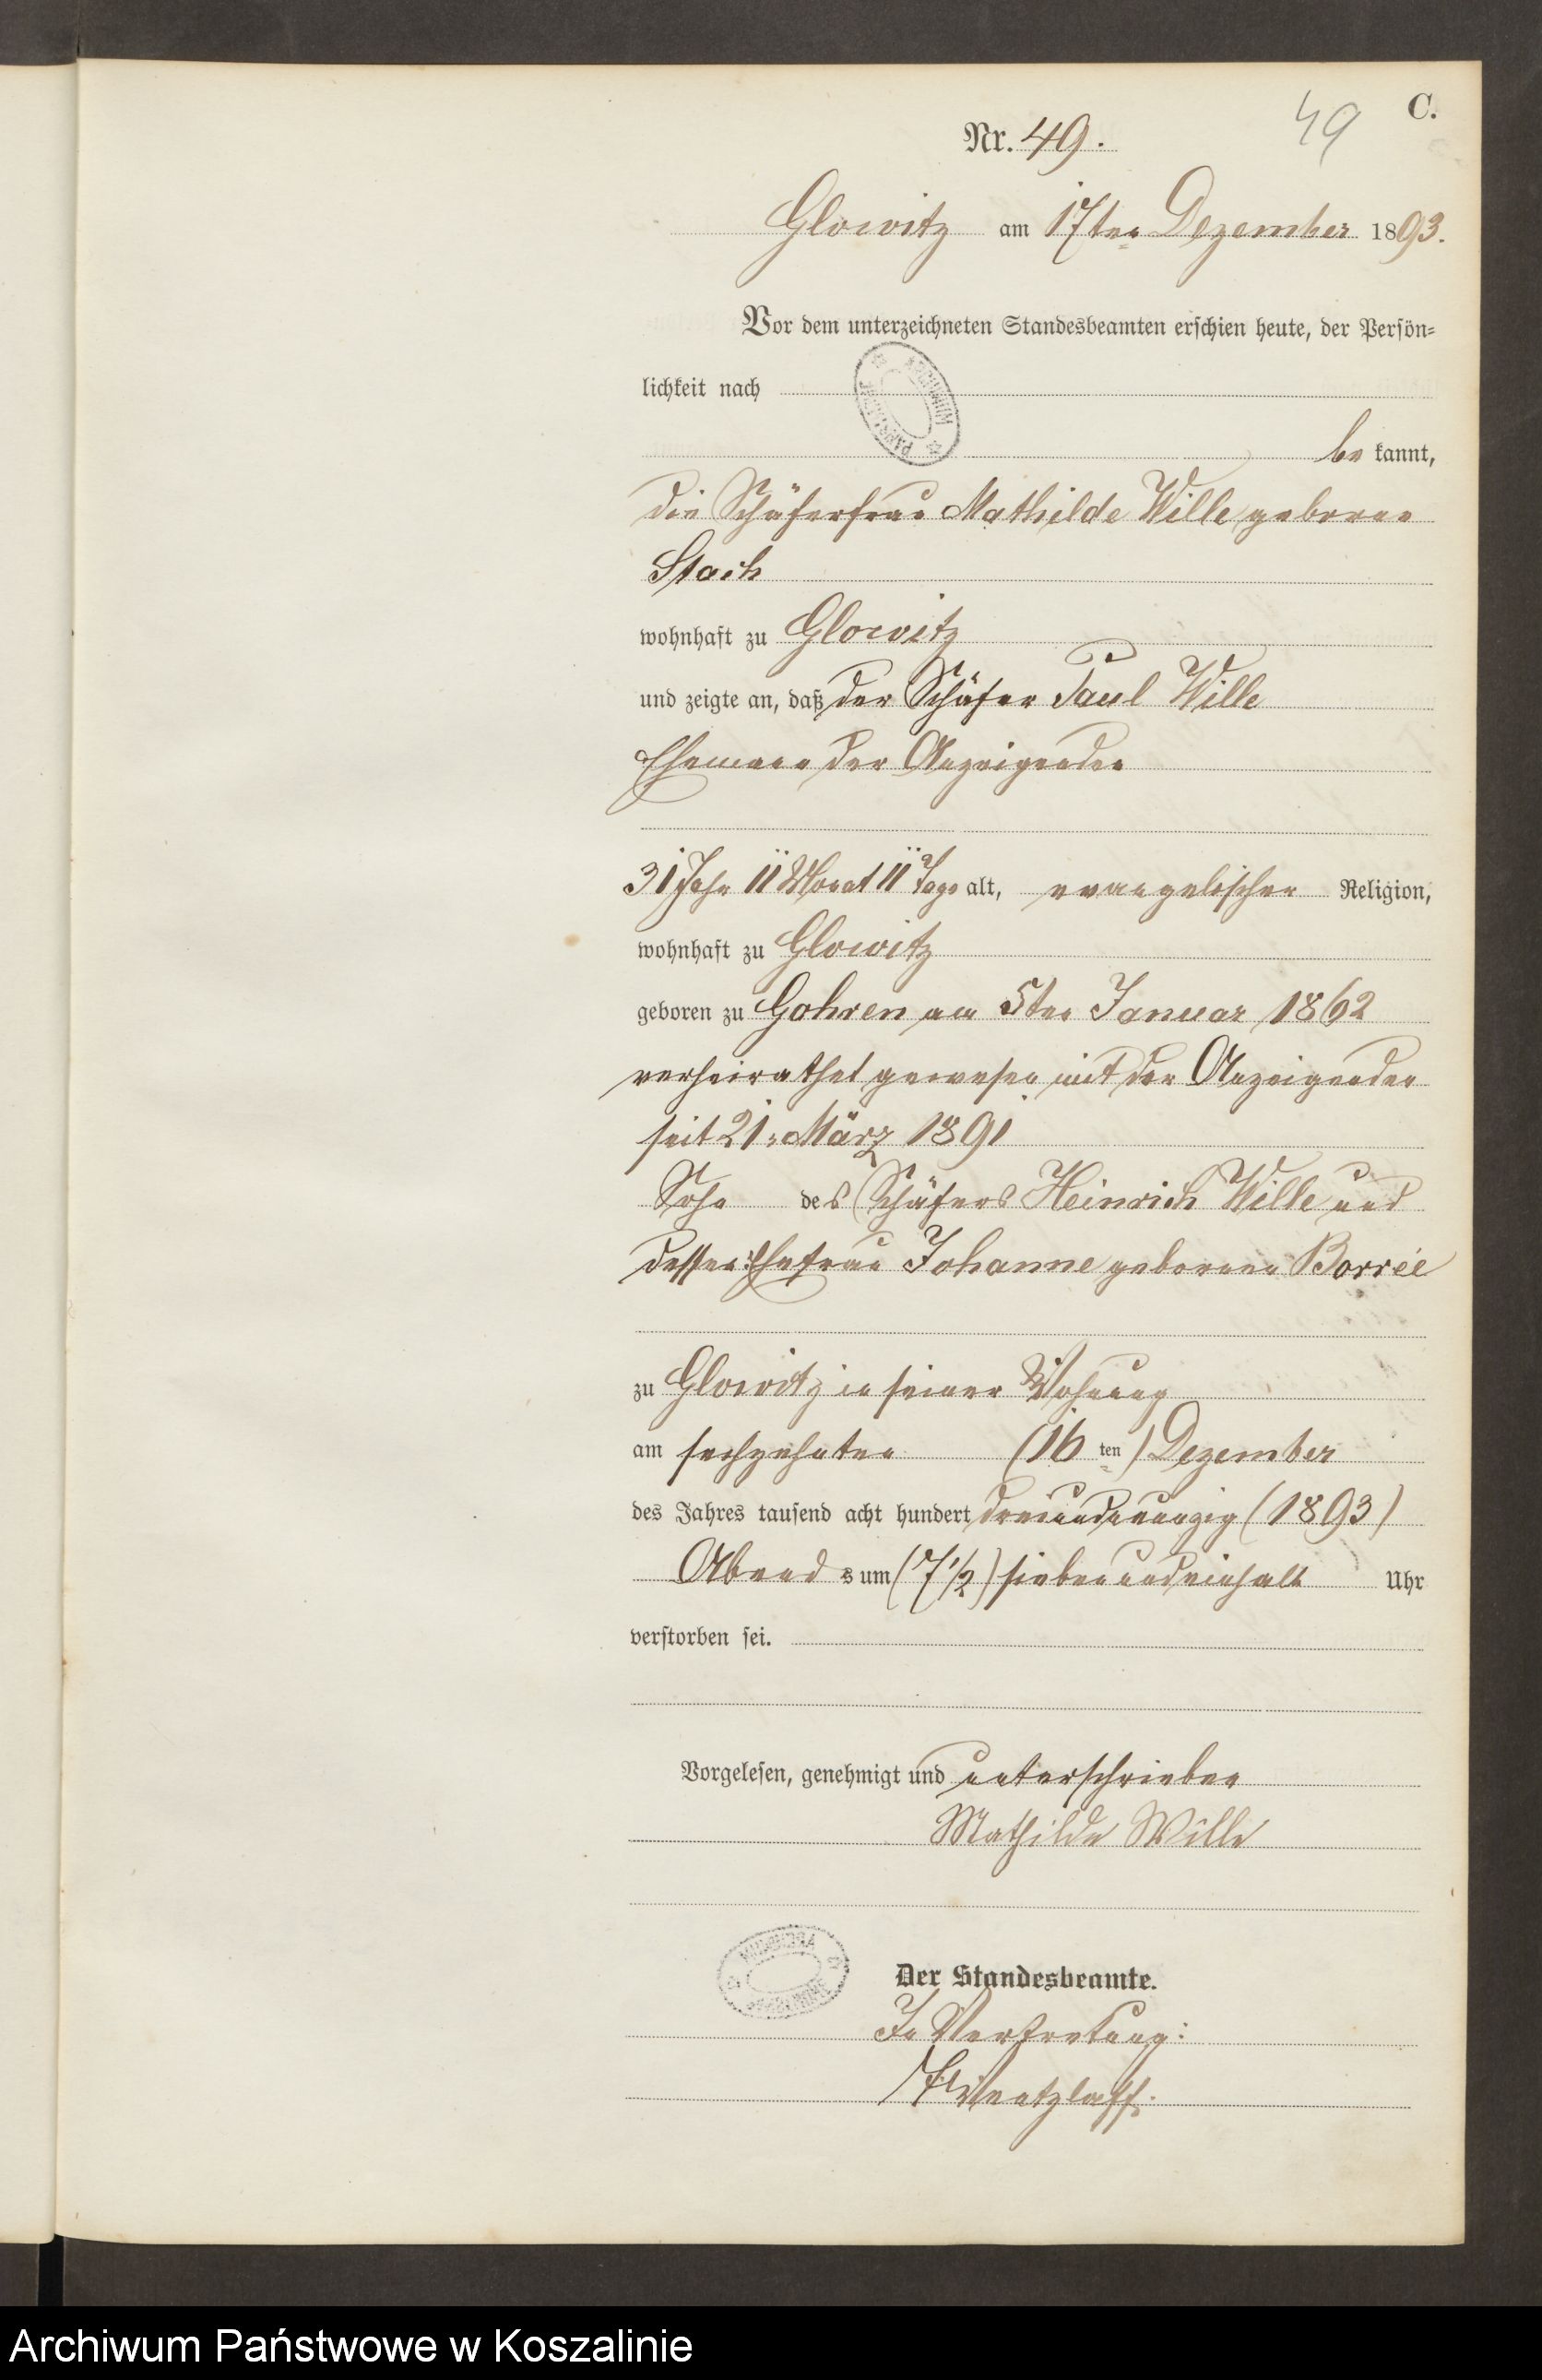 C.
49
Nr. 49.
Glowitz am 17ten Dezember 1893.
Vor dem unterzeichneten Standesbeamten erschien heute, der Persön-
lichkeit nach
be kannt,
die Schäferfrau Mathilde Wille geborne
Stach
wohnhaft zu Glowitz
und zeigte an, daß der Schäfer Paul Wille
Ehemann der Anzeigenden
31 Jahr 11 Monat 11 Tage alt, evangelischer Religion,
wohnhaft zu Glowitz
geboren zu Gohren am 5ten Januar 1862
verheirathet gewesen mit der Anzeigenden
seit 21. März 1891
Sohn des Schäfers Heinrich Wille und
dessen Ehefrau Johanne geborenen Borreé
zu Glowitz in seiner Wohnung
am sechzehnten (16 ten) Dezember
des Jahres tausend acht hundert dreiundneunzig (1893)
Abend s um (7 1/2) siebenundeinhalb Uhr
verstorben sei.
Vorgelesen, genehmigt und unterschrieben
Mathilde Wille
Der Standesbeamte.
In Vertretung:
Wentzlaff.
Archiwum Państwowe w Koszalinie